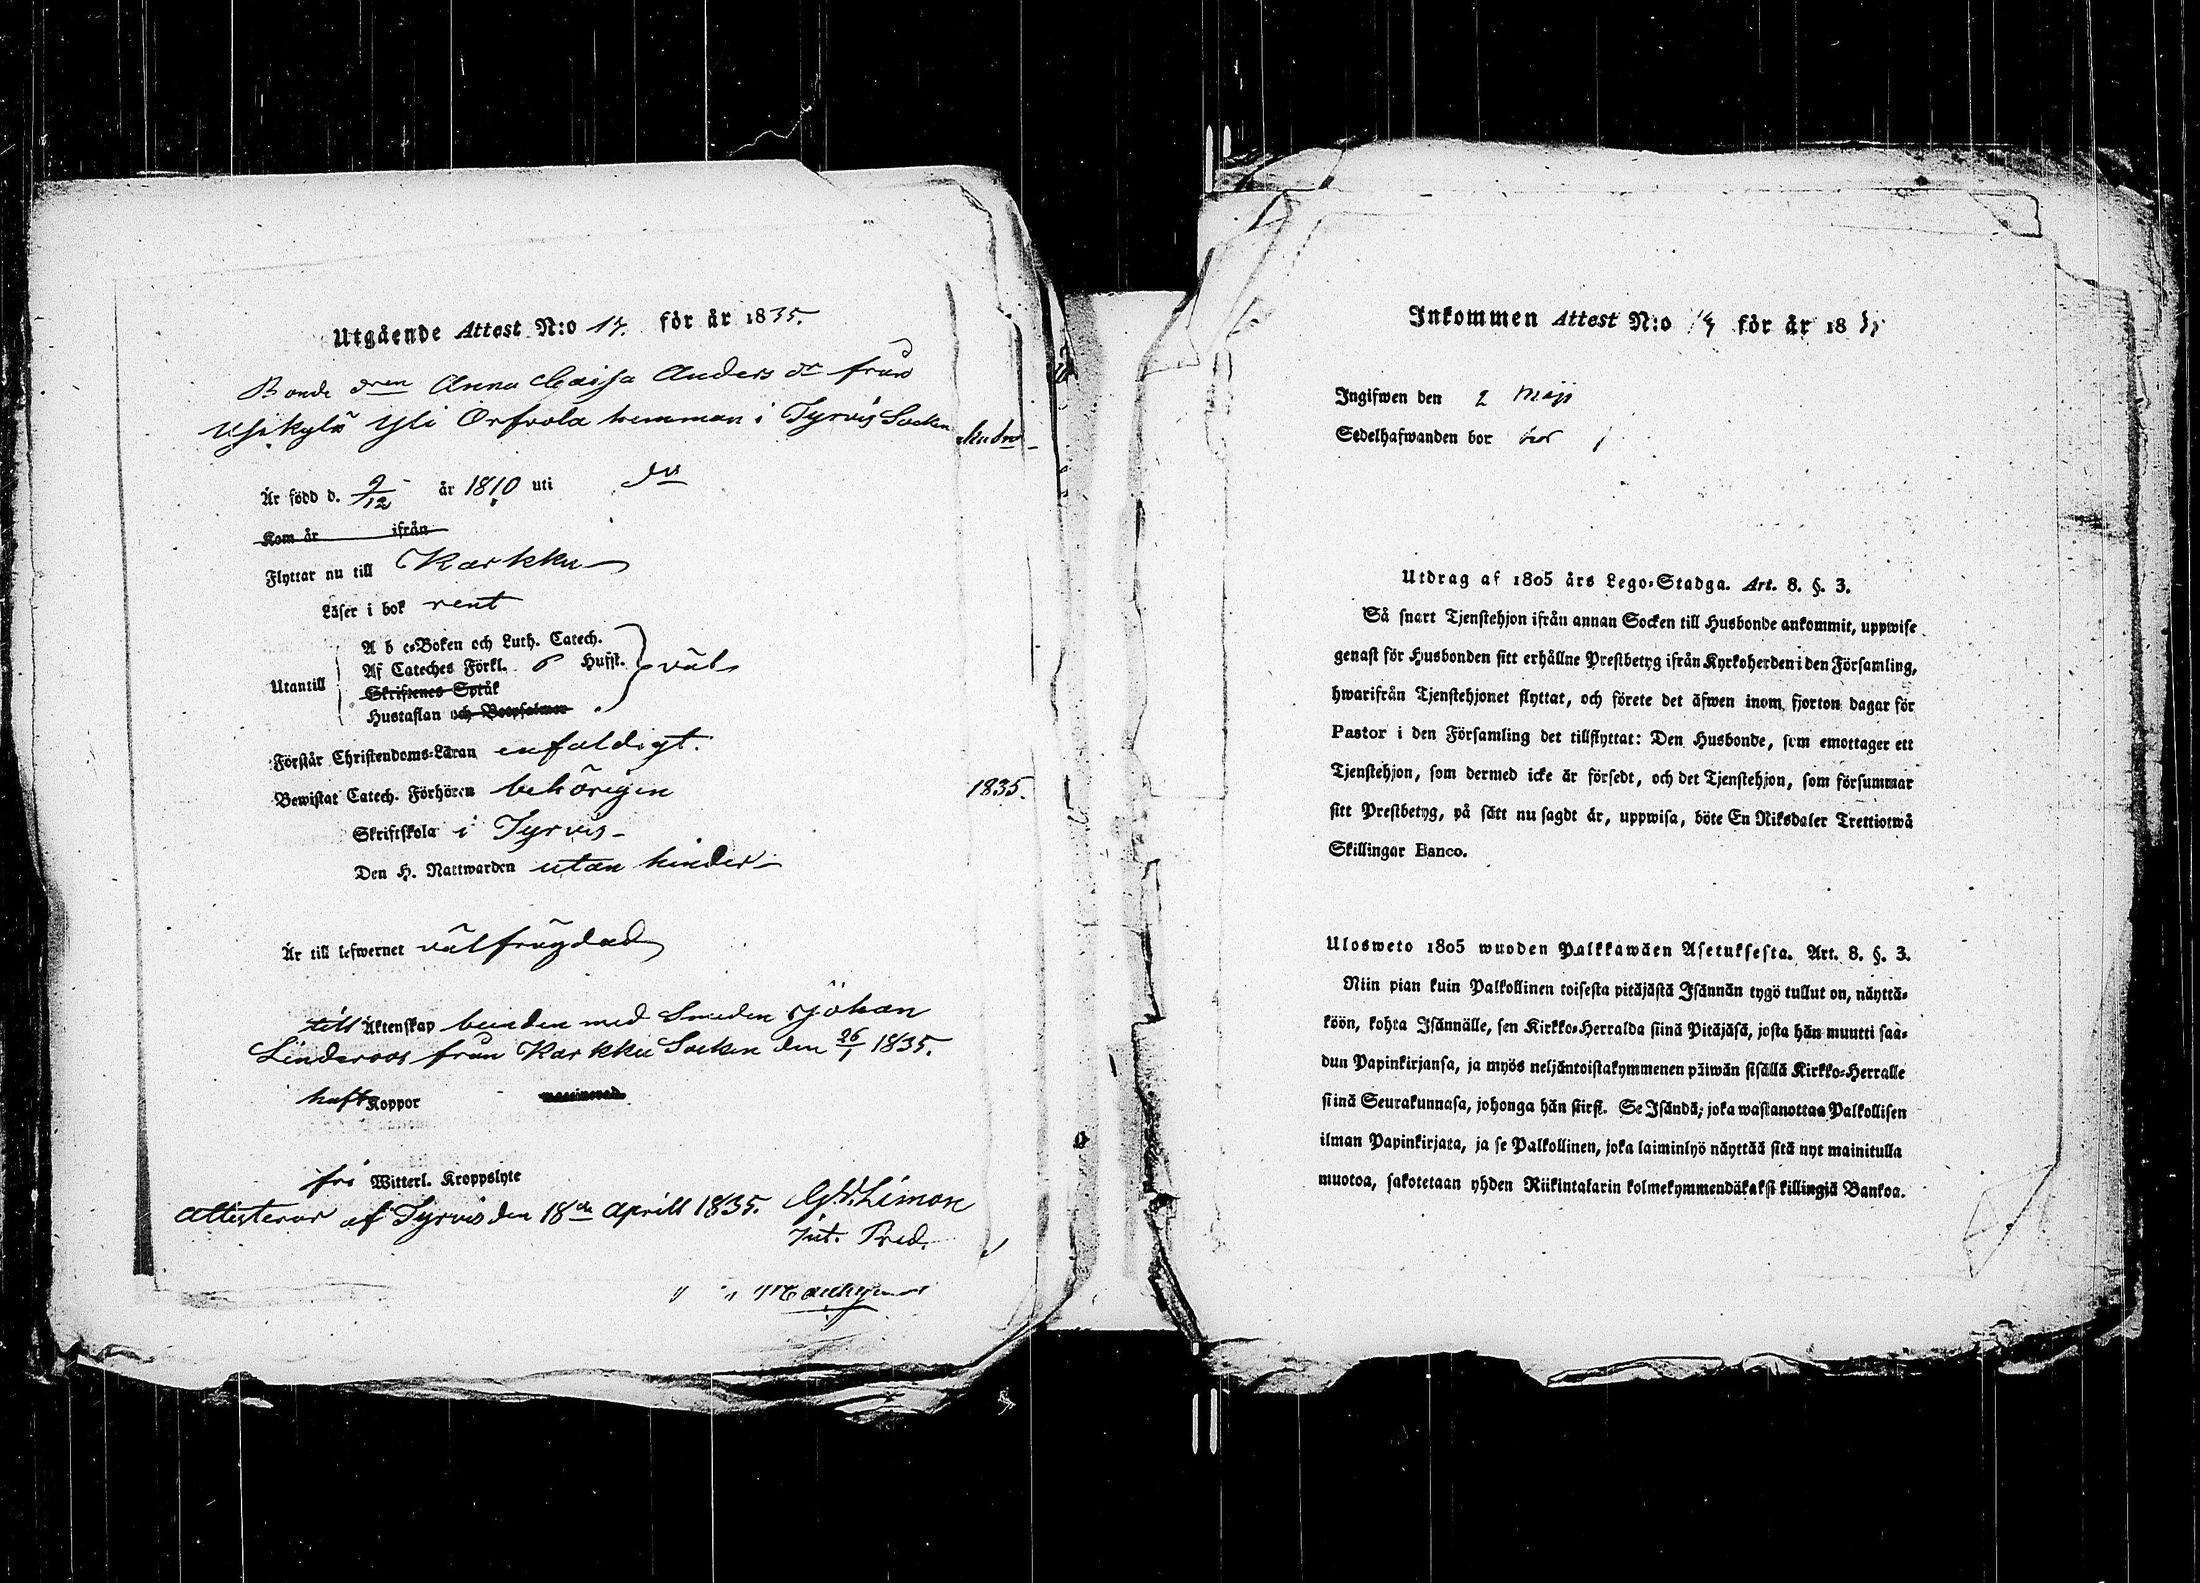 Utgående Attest N:o 17. för år 1835.
Bonde dren Anna Caisa Anders dr från
Uhikylä Yli Orfvola hemman i Tyrvis Socken
Är född d. 9/12 år 1810 uti do
Kom år ifrån
Flyttar nu till Karkku
Läser i bok rent
A b c-Boken och Luth. Catech.
Utantill Af Cateches Förkl. 6 Hufst. väl
Skriftenes Språk
Hustaflan och Botpsalmer
Förstår Christendoms-Läran enfaldigt.
Bewistat Catech. Förhören behörigen
1835.
Skriftskola i Tyrvis
Den H. Nattwarden utan hinder
Är till lefwernet välfrägdad
till Äktenskap bunden med Smeden Johan
Linderoos från Karkku Socken den 26/1 1835.
haft Koppor vaccinerad
fri Witterl. Kroppslyte
Attesterar af Tyrvis den 18de Aprill 1835. Limon
Pred.
Inkommen Attest N:o för år 18
Ingifwen den 2 Maji
Sedelhafwanden bor
Utdrag af 1805 års Lego-Stadga. Art. 8. §. 3.
Så snart Tjenstehjon ifrån annan Socken till Husbonde ankommit, uppwise
genast för Husbonden sitt erhållne Prestbetyg ifrån Kyrkoherden i den Församling,
hwarifrån Tjenstehjonet flyttat, och förete det äfwen inom fjorton dagar för
Pastor i den Församling det tillflyttat: Den Husbonde, som emottager ett
Tjenstehjon, som dermed icke är försedt, och det Tjenstehjon, som försummar
sitt Prestbetyg, på sätt nu sagdt är, uppwisa, böte En Riksdaler Trettiotwå
Skillingar Banco.
Ulosweto 1805 wuoden Palkkawäen Asetuksesta. Art. 8. §. 3.
Niin pian kuin Palkollinen toisesta pitäjästä Isännän tygö tullut on, näyttä-
köön, kohta Isännälle, sen Kirkko-Herralda siinä Pitäjäsä, josta hän muutti saa-
dun Papinkirjansa, ja myös neljäntoistakymmenen päiwän sisällä Kirkko-Herralle
siinä Seurakunnasa, johonga hän siirsi. Se Isändä, joka wastanottaa Palkollisen
ilman Papinkirjata, ja se Palkollinen, joka laiminlyö näyttää sitä nyt mainitulla
muotoa, sakotetaan yhden Riikintalarin kolmekymmendäkaksi killingiä Bankoa.